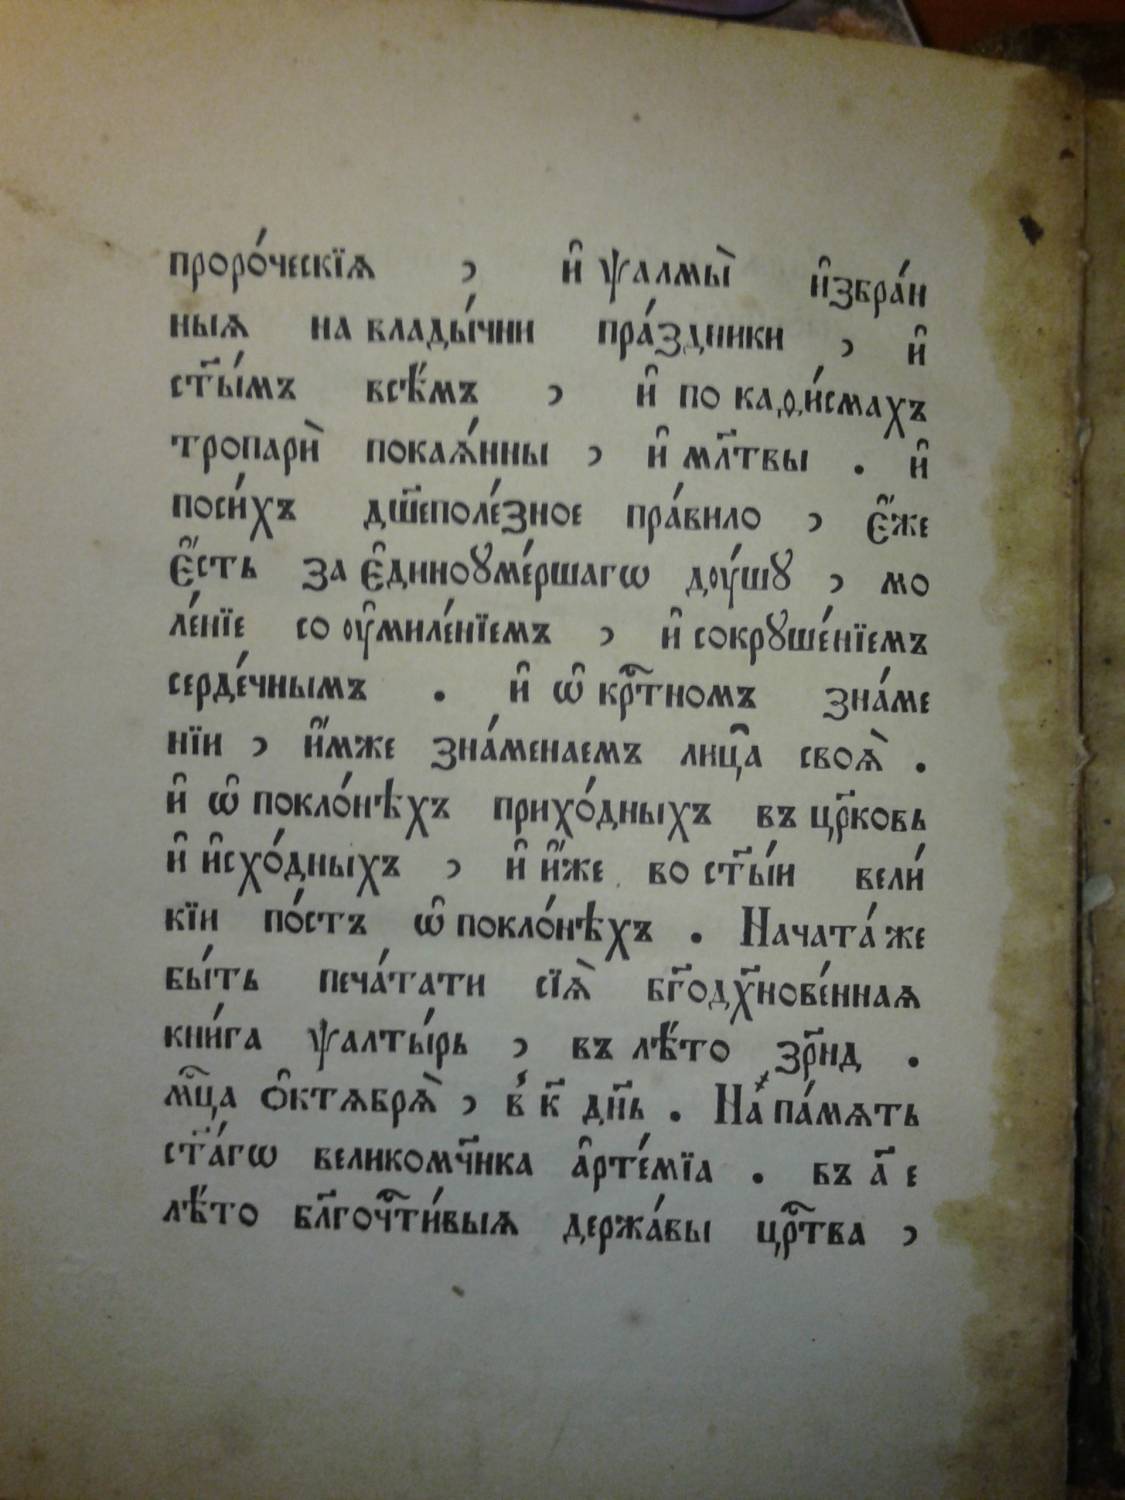 проро́ческїѧ , и҆ ѱалмы̀ и҆збра́н
ныѧ на влады́чни пра́здники , и҆
ст҃ы́мъ всѣ̑мъ , и҆ по каѳи́смахъ
тропари̑ покаѧ́нны , и҆ мл҃твы . и҆
поси́хъ дш҃еполе́зное пра́вило , є҆́же
є҆́сть за є҆диноꙋме́ршагѡ дꙋ́шꙋ , мо
ле́нїе со ѹ҆миле́нїемъ , и҆ сокрꙋше́нїемъ
серде́чнымъ . и҆ ѡ҆ крⷭ҇тномъ зна́ме
нїи , и҆́мже зна́менаемъ лица̑ своѧ̀ .
и҆ ѡ҆ покло́нѣхъ прихо́дныхъ въ цр҃ковь
и҆ и҆схо́дныхъ , и҆ и҆́же во ст҃ы́и вели́
кїи по́стъ ѡ҆ покло́нѣхъ . Начата́ же
бы́ть печа́тати сїѧ̀ бг҃одх҃нове́ннаѧ
кни́га ѱалты́рь , въ лѣ́то ҂зр҃нд .
мцⷭ҇а ѻ҆ктѧбрѧ̀ , в́ к҃ дн҃ь . На па́мѧть
ст҃а́гѡ великомч҃ника а҆рте́мїа . въ а҃ е
лѣ́то бл҃гочⷭ҇ти́выѧ держа́вы црⷭ҇тва ,